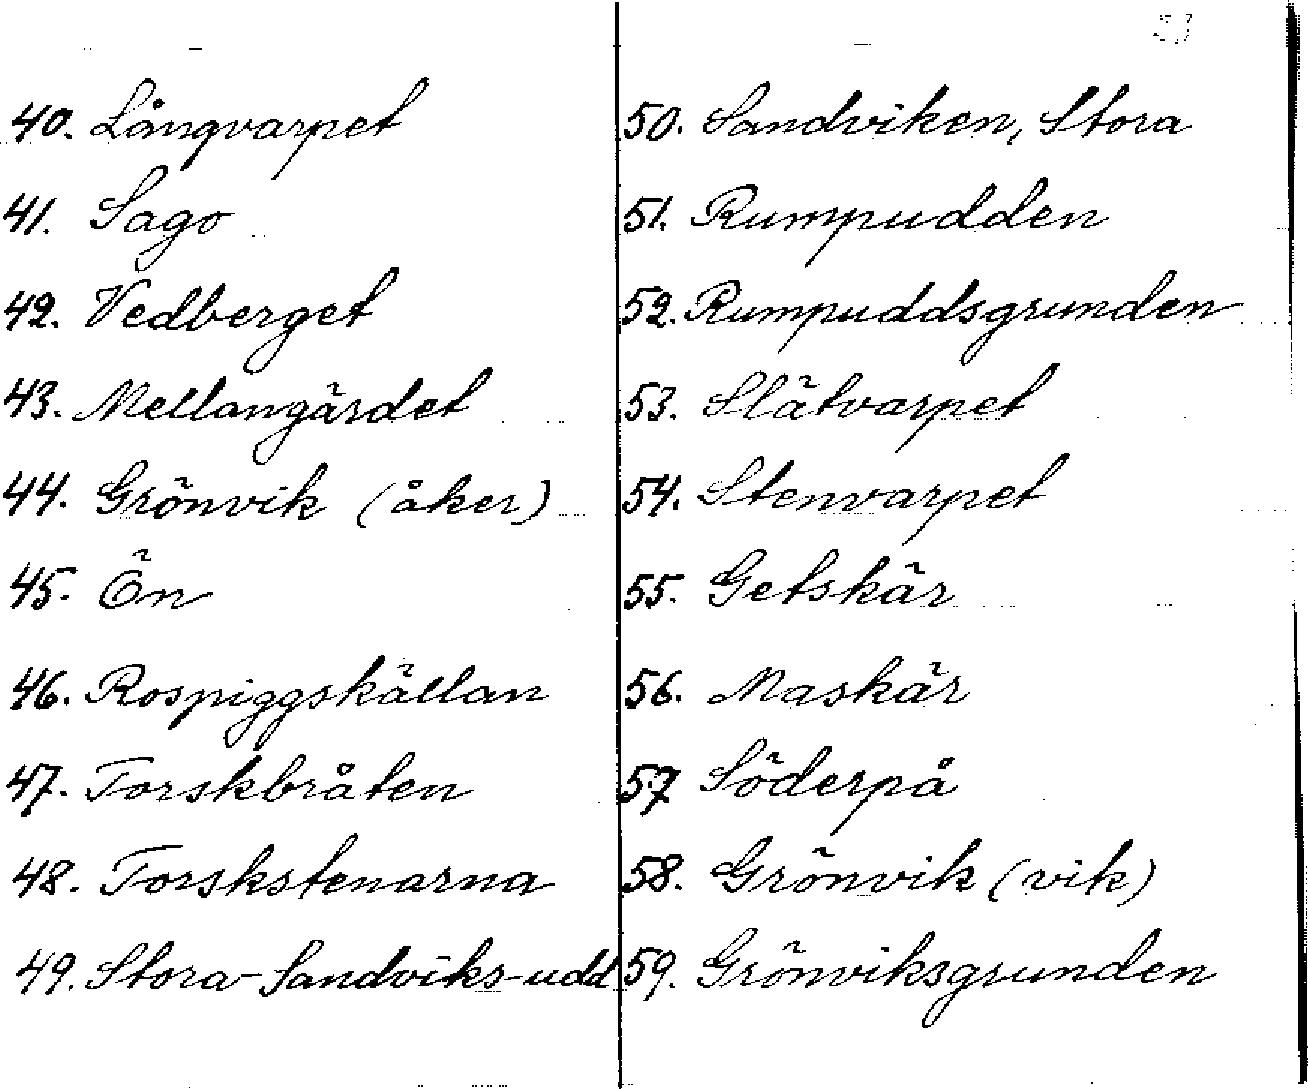 40. Långvarpet
41. Sago
42. Vedberget
43. Mellangärdet
44. Grönvik (åker)
45. Ön
46. Rospiggskällan
47. Torskbråten
48. Torskstenarna
49. Stora-Sandviks-udd
50. Sandviken, Stora
51. Rumpudden
52. Rumpuddsgrunden
53. Slätvarpet
54. Stenvarpet
55. Getskär
56. Maskär
57 Söderpå
58. Grönvik (vik)
59. Grönviksgrunden